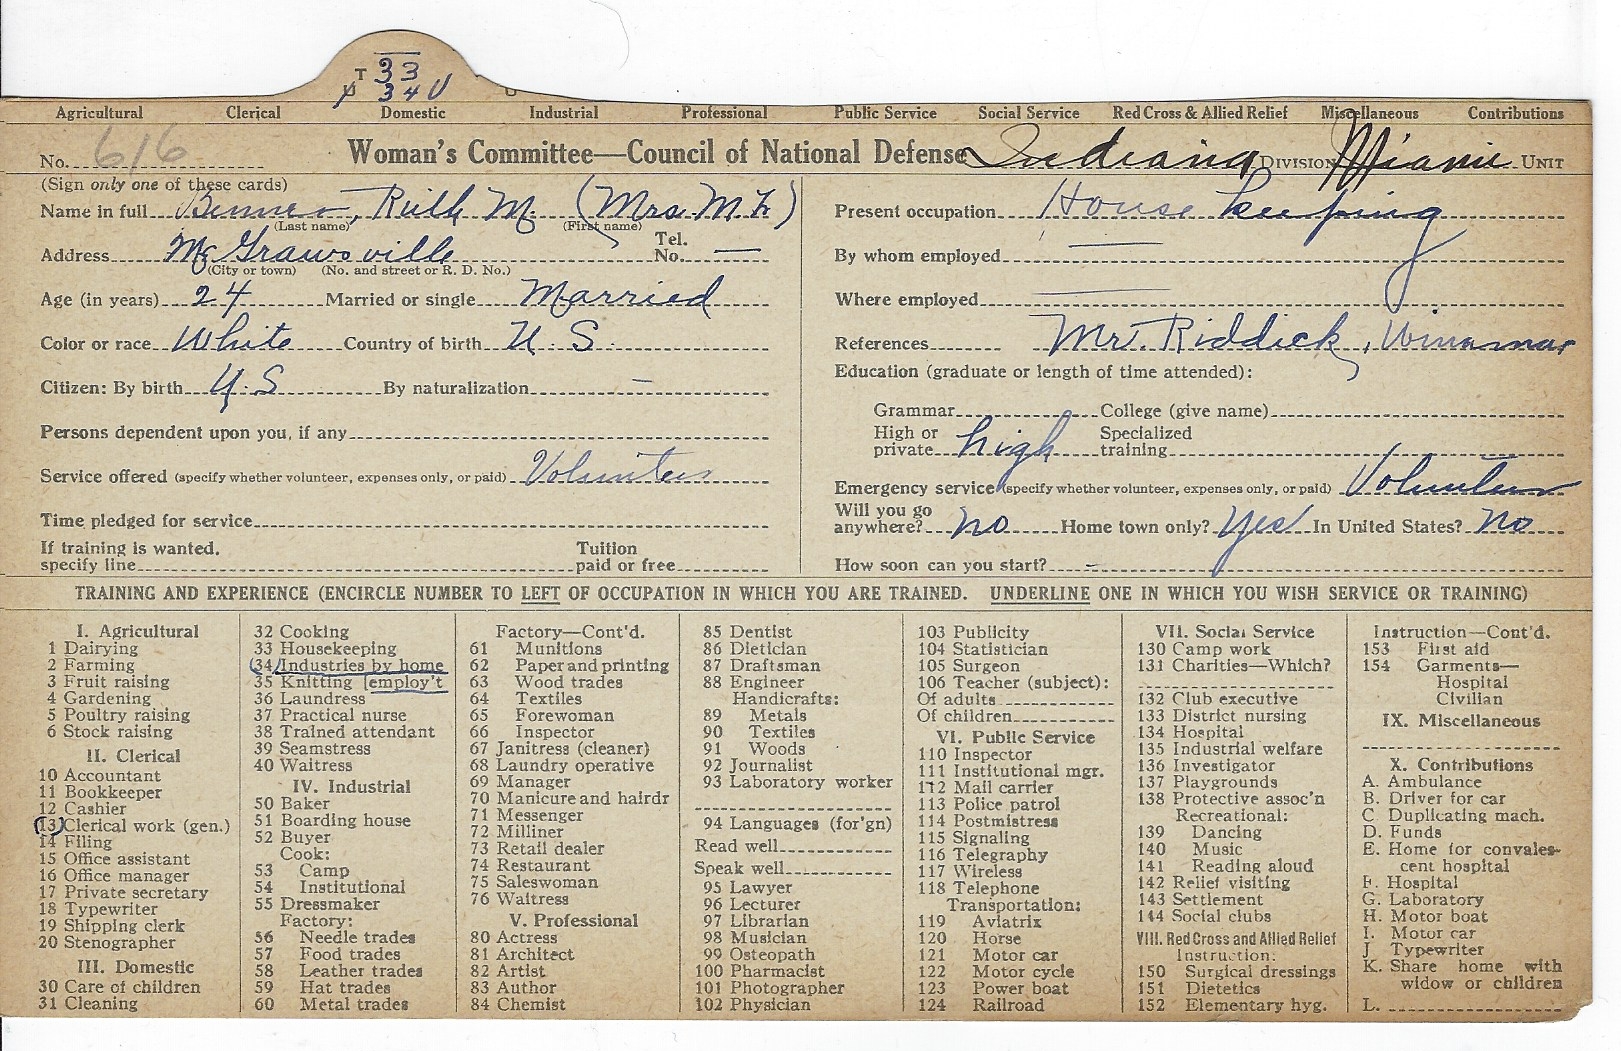 T 33
34 U
Agricultural Clerical Domestic Industrial Professional Public Service Social Service Red Cross & Allied Relief Miscellaneous Contributions
No. 616 Woman's Committee—Council of National Defense Indiana DIVISION Miami UNIT
(Sign only one of these cards)
Name in full Ruth M. (Mrs. M. F.)
(Last name) (First name)
Address McGrawsville Tel. No. —
(City or town) (No. and street or R. D. No.)
Age (in years) 24 Married or single Married
Color or race White Country of birth U. S.
Citizen: By birth U. S By naturalization —
Persons dependent upon you, if any
Service offered (specify whether volunteer, expenses only, or paid) Volunteer
Time pledged for service
If training is wanted, specify line Tuition paid or free
Present occupation House keeping
By whom employed —
Where employed —
References Mr. Riddick, Winamac
Education (graduate or length of time attended):
Grammar College (give name)
High or private high Specialized training
Emergency service (specify whether volunteer, expenses only, or paid) Volunteer
Will you go anywhere? no Home town only? Yes In United States? no
How soon can you start? -
TRAINING AND EXPERIENCE (ENCIRCLE NUMBER TO LEFT OF OCCUPATION IN WHICH YOU ARE TRAINED. UNDERLINE ONE IN WHICH YOU WISH SERVICE OR TRAINING)
I. Agricultural
1 Dairying
2 Farming
3 Fruit raising
4 Gardening
5 Poultry raising
6 Stock raising
II. Clerical
10 Accountant
11 Bookkeeper
12 Cashier
13 Clerical work (gen.)
14 Filing
15 Office assistant
16 Office manager
17 Private secretary
18 Typewriter
19 Shipping clerk
20 Stenographer
III. Domestic
30 Care of children
31 Cleaning
32 Cooking
33 Housekeeping
34 Industries by home
35 Knitting [employ't
36 Laundress
37 Practical nurse
38 Trained attendant
39 Seamstress
40 Waitress
IV. Industrial
50 Baker
51 Boarding house
52 Buyer
Cook:
53 Camp
54 Institutional
55 Dressmaker
Factory:
56 Needle trades
57 Food trades
58 Leather trades
59 Hat trades
60 Metal trades
Factory—Cont'd.
61 Munitions
62 Paper and printing
63 Wood trades
64 Textiles
65 Forewoman
66 Inspector
67 Janitress (cleaner)
68 Laundry operative
69 Manager
70 Manicure and hairdr
71 Messenger
72 Milliner
73 Retail dealer
74 Restaurant
75 Saleswoman
76 Waitress
V. Professional
80 Actress
81 Architect
82 Artist
83 Author
84 Chemist
85 Dentist
86 Dietician
87 Draftsman
88 Engineer
Handicrafts:
89 Metals
90 Textiles
91 Woods
92 Journalist
93 Laboratory worker
94 Languages (for'gn)
Read well
Speak well
95 Lawyer
96 Lecturer
97 Librarian
98 Musician
99 Osteopath
100 Pharmacist
101 Photographer
102 Physician
103 Publicity
104 Statistician
105 Surgeon
106 Teacher (subject):
Of adults
Of children
VI. Public Service
110 Inspector
111 Institutional mgr.
112 Mail carrier
113 Police patrol
114 Postmistress
115 Signaling
116 Telegraphy
117 Wireless
118 Telephone
Transportation:
119 Aviatrix
120 Horse
121 Motor car
122 Motor cycle
123 Power boat
124 Railroad
VII. Social Service
130 Camp work
131 Charities—Which?
132 Club executive
133 District nursing
134 Hospital
135 Industrial welfare
136 Investigator
137 Playgrounds
138 Protective assoc'n
Recreational:
139 Dancing
140 Music
141 Reading aloud
142 Relief visiting
143 Settlement
144 Social clubs
VIII. Red Cross and Allied Relief
Instruction:
150 Surgical dressings
151 Dietetics
152 Elementary hyg.
Instruction—Cont'd.
153 First aid
154 Garments—
Hospital
Civilian
IX. Miscellaneous
X. Contributions
A. Ambulance
B. Driver for car
C Duplicating mach.
D. Funds
E. Home for convales-
cent hospital
F. Hospital
G. Laboratory
H. Motor boat
I. Motor car
J Typewriter
K. Share home with
widow or children
L.